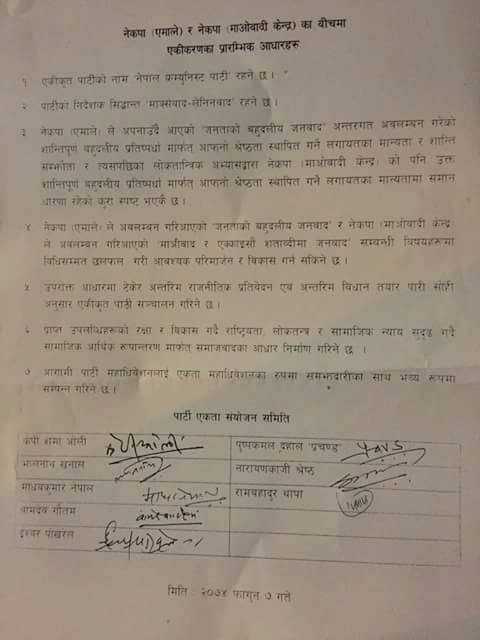 नेकपा (एमाले) र नेकपा (माओवादी केन्द्र) का बीचमा
एकीकरणका प्रारम्भिक आधारहरु
१ एकीकृत पार्टीको नाम 'नेपाल कम्युनिस्ट पार्टी' रहने छ ।
२ पार्टीको निर्देशक सिद्धान्त 'मार्क्सवाद-लेनिनवाद' रहने छ ।
३ नेकपा (एमाले) ले अपनाउँदै आएको 'जनताको बहुदलीय जनवाद' अन्तरगत अवलम्बन गरेको
शान्तिपूर्ण बहुदलीय प्रतिष्पर्धा मार्फत आफनो श्रेष्ठता स्थापित गर्ने लगायतका मान्यता र शान्ति
सम्झौता र त्यसपछिका लोकतान्त्रिक अभ्यासद्वारा नेकपा (माओवादी केन्द्र) को पनि उक्त
शान्तिपूर्ण बहुदलीय प्रतिष्पर्धा मार्फत आफनो श्रेष्ठता स्थापित गर्ने लगायतका मान्यतामा समान
धारणा रहेको कुरा स्पष्ट भएकै छ ।
४ नेकपा (एमाले) ले अवलम्बन गरिआएको 'जनताको बहुदलीय जनवाद' र नेकपा (माओवादी केन्द्र)
ले अवलम्बन गरिआएको 'माओवाद र एक्काइसौं शताब्दीमा जनवाद' सम्बन्धी विषयहरूमा
विधिसम्मत छलफल गरी आवश्यक परिमार्जन र विकास गर्न सकिने छ ।
५ उपरोक्त आधारमा टेकेर अन्तरिम राजनीतिक प्रतिवेदन एवं अन्तरिम विधान तयार पारी सोही
अनुसार एकीकृत पार्टी सञ्चालन गरिने छ ।
६ प्राप्त उपलब्धिहरूको रक्षा र विकास गर्दै राष्ट्रियता, लोकतन्त्र र सामाजिक न्याय सुदृढ गर्दै
सामाजिक आर्थिक रूपान्तरण मार्फत समाजवादका आधार निर्माण गरिने छ ।
७ आगामी पार्टी महाधिवेशनलाई एकता महाधिवेशनका रुपमा समझदारीका साथ भव्य रूपमा
सम्पन्न गरिने छ ।
पार्टी एकता संयोजन समिति
केपी शर्मा ओली
पुष्पकमल दहाल 'प्रचण्ड'
झलनाथ खनाल
नारायणकाजी श्रेष्ठ
माधवकुमार नेपाल
रामबहादुर थापा
वामदेव गौतम
ईश्वर पोखरेल
मिति : २०७४ फागुन ७ गते